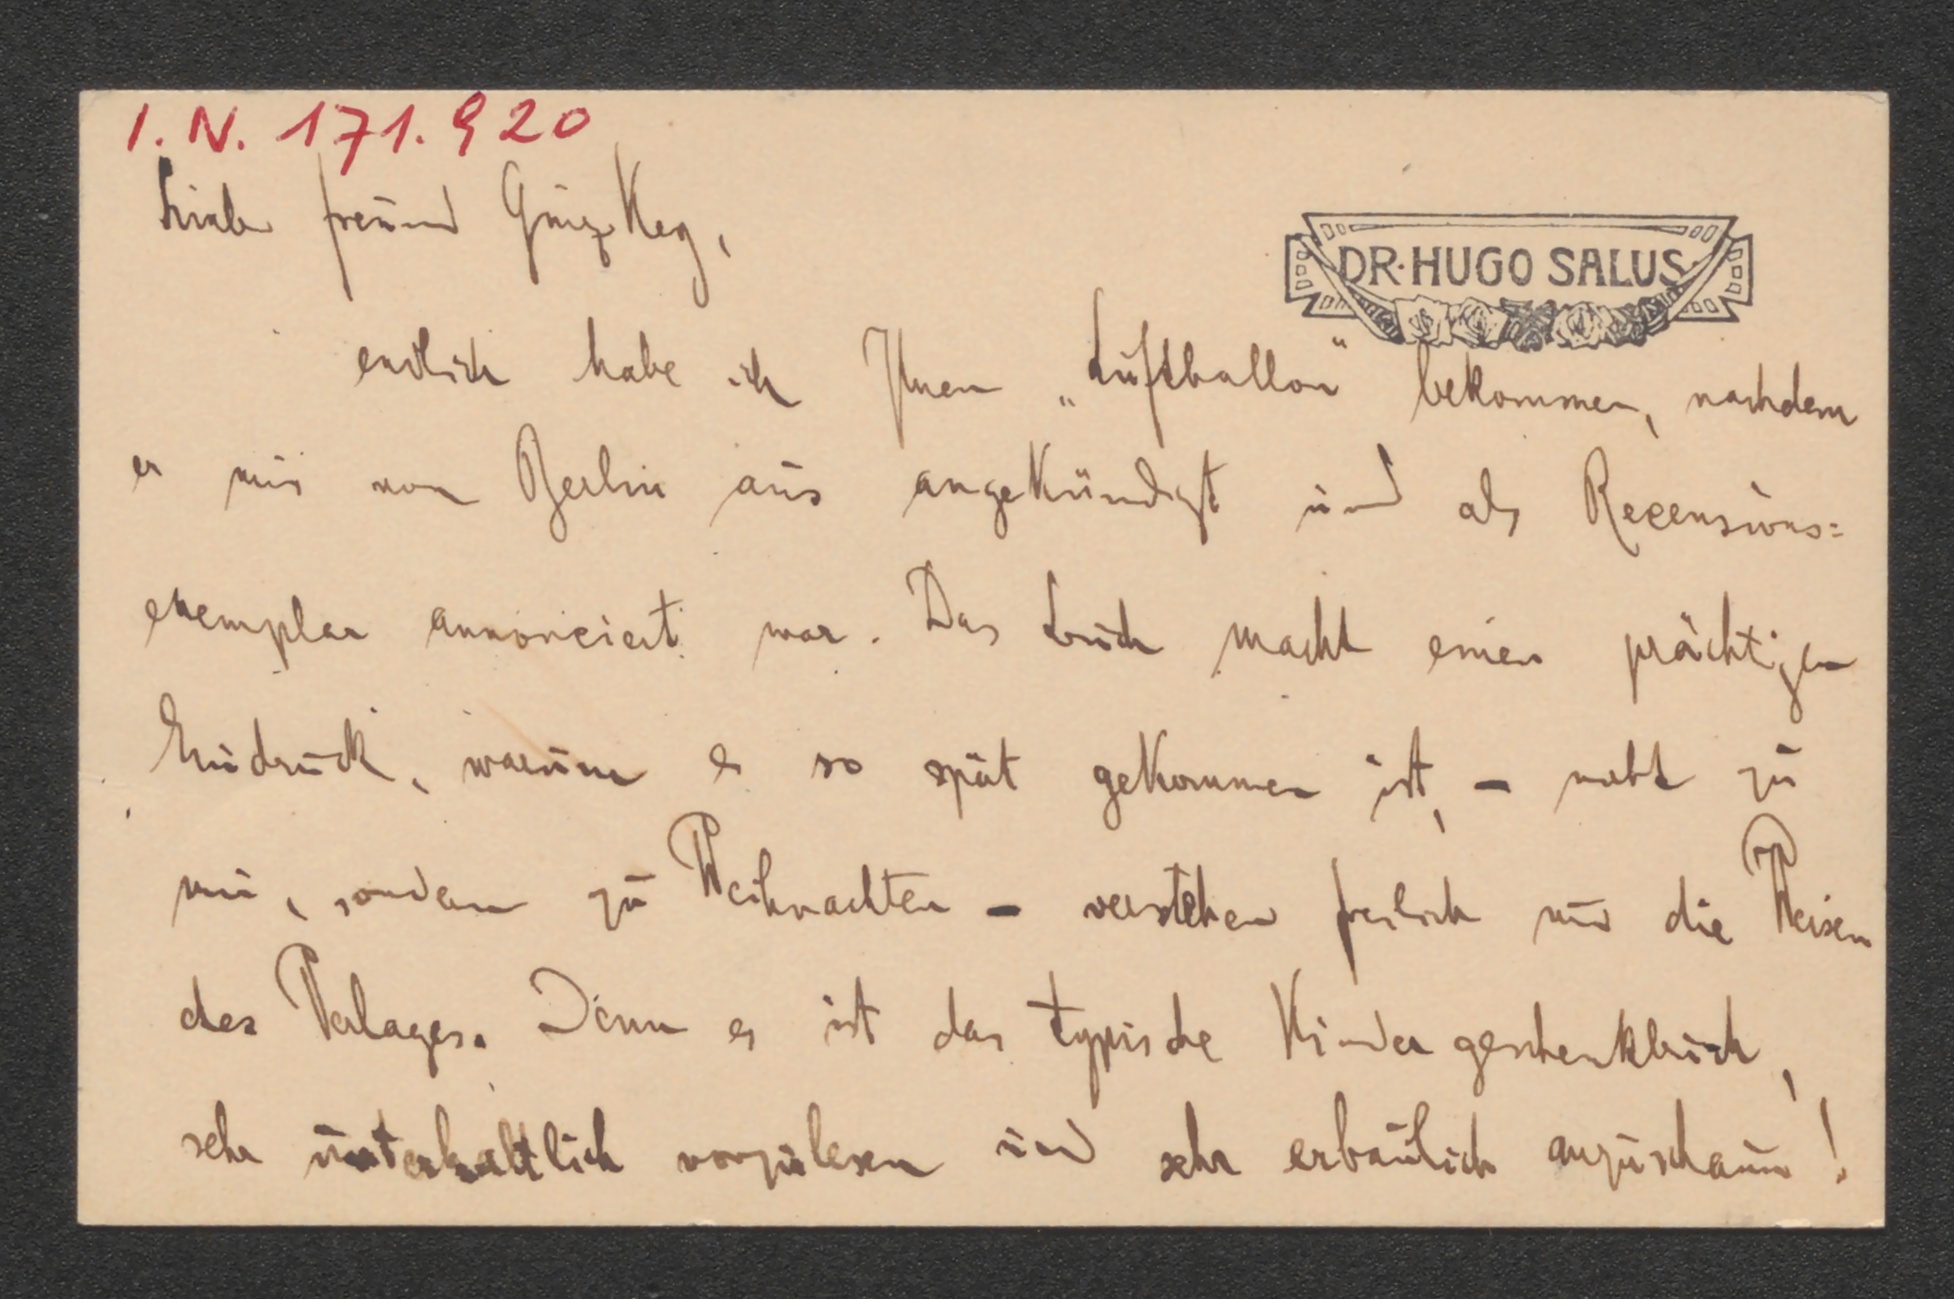 I.N. 171.920
Lieber Freund Ginzkey,
DR·HUGO SALUS·
endlich habe ich Ihren „Luftballon" bekommen, nachdem
er mir von Berlin aus angekündigt und als Recensions=
exemplar annonciert war. Das Buch macht einen prächtigen
Eindruck, warum es so spät gekommen ist, – nicht zu
mir, sondern zu Weihnachten – verstehen freilich nur die Weisen
des Verlages. Denn es ist das typische Kindergeschenkbuch,
sehr unterhaltlich vorzulesen und sehr erbaulich anzuschaun!